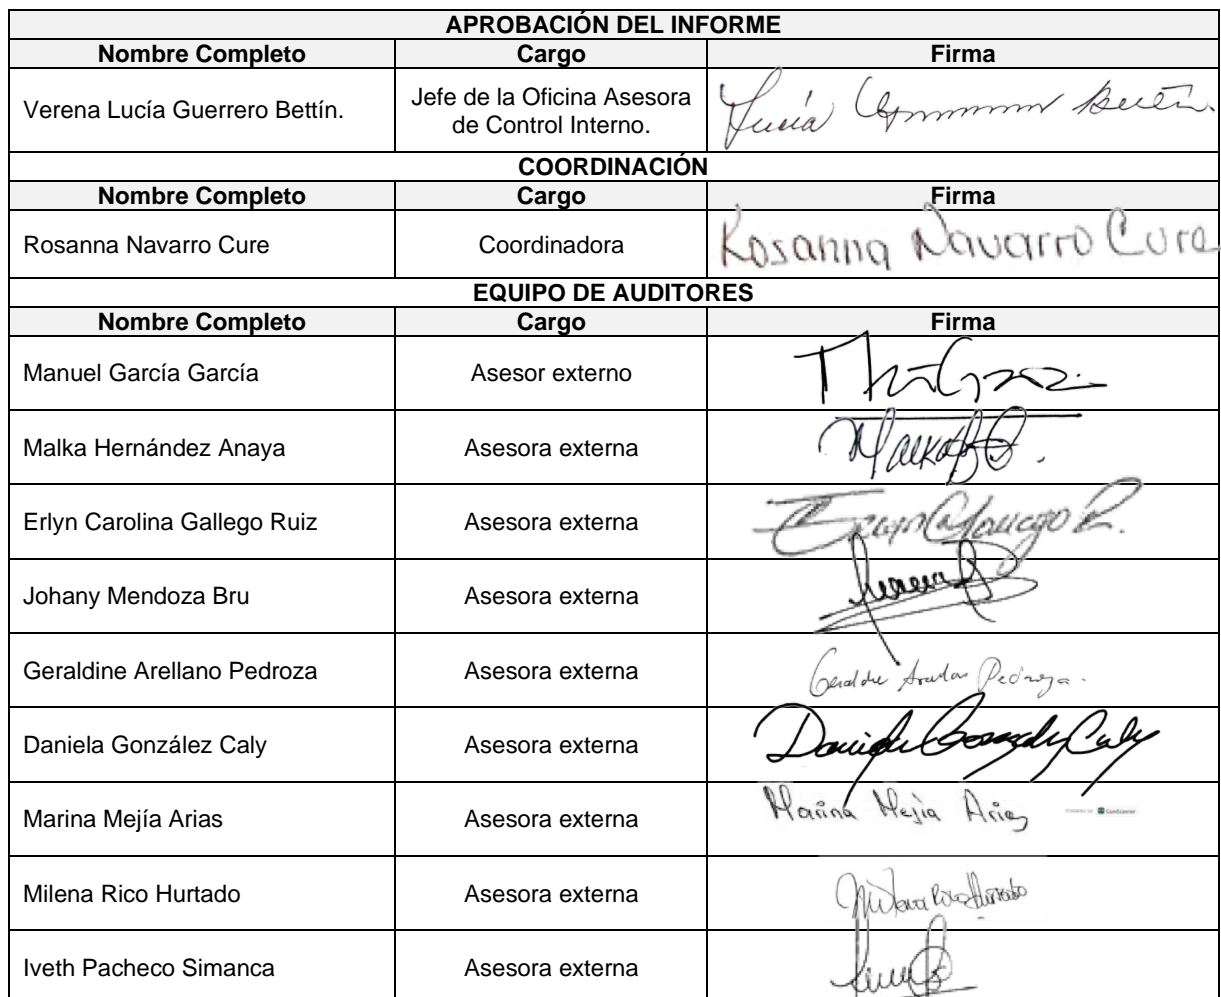 APROBACIÓN DEL INFORME
Nombre Completo Cargo Firma
Verena Lucía Guerrero Bettín. Jefe de la Oficina Asesora de Control Interno. Lucía Bettín.
COORDINACIÓN
Nombre Completo Cargo Firma
Rosanna Navarro Cure Coordinadora Rosanna Navarro Cure
EQUIPO DE AUDITORES
Nombre Completo Cargo Firma
Manuel García García Asesor externo
Malka Hernández Anaya Asesora externa Malka
Erlyn Carolina Gallego Ruiz Asesora externa
Johany Mendoza Bru Asesora externa
Geraldine Arellano Pedroza Asesora externa Pedroza.
Daniela González Caly Asesora externa Daniela González Caly
Marina Mejía Arias Asesora externa Marina Mejía Arias CamScanner
Milena Rico Hurtado Asesora externa Milena Rico Hurtado
Iveth Pacheco Simanca Asesora externa